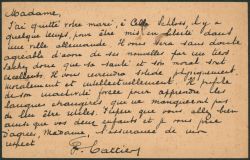 Madame,
J'ai quitté votre mari, à Celle Schloss, il y a
quelque temps, pour être mis en liberté dans
une ville allemande. Il vous sera sans doute
agréable d'avoir de ses nouvelles par un tiers
Sachez donc que sa santé et son moral sont
excellents. Il vous reviendra solide physiquement,
moralement et intellectuellement. Il profite
de son de force pour apprendre les
langues étrangères qui ne manqueront pas
de lui être utiles. J'espère que vous allez bien
ainsi que vos chers enfants et je vous prie
d'agréer, Madame, l'assurance de mon
respect